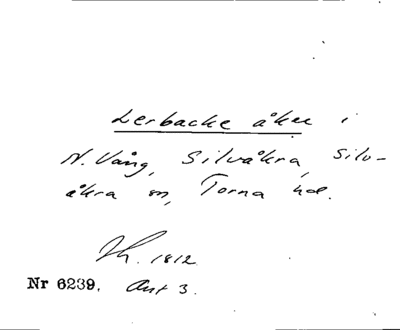 Lerbacke åker i
N. Vång, Silvåkra, Silv-
åkra sn, Torna hd.
Kh. 1812
Nr 6239. Akt 3.